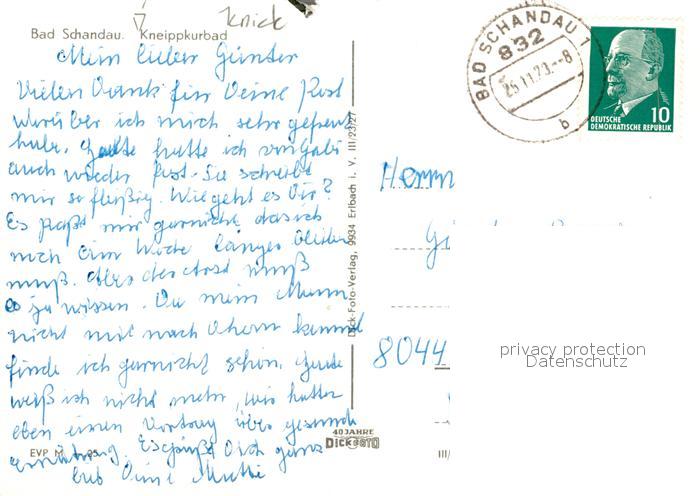 Knick
Bad Schandau. Kneippkurbad
Mein lieber Günter
Vielen Dank für Deine Post
worüber ich mich sehr gefreut
habe. Heute hatte ich von Gabi
auch wieder Post. Sie schreibt
mir so fleißig. Wie geht es Dir?
Es paßt mir garnicht das ich
noch eine Woche länger bleiben
muß. Aber der Arzt muß
es ja wissen. Du mein Mann
nicht mit nach Thorn kommt
finde ich garnicht schön. Heute
weiß ich nicht mehr, wir hatten
eben einen Vortrag über gesunde
Ernährung. Es grüßt Dich ganz
lieb Deine Mutti
EVP M -.25
Dick-Foto-Verlag, 9934 Erlbach i. V. III/23/27
40 JAHRE
DICK FOTO
III/
BAD SCHANDAU 1
832
26.11.73.--8
b
DEUTSCHE
DEMOKRATISCHE REPUBLIK
10
Herrn
8044
privacy protection
Datenschutz